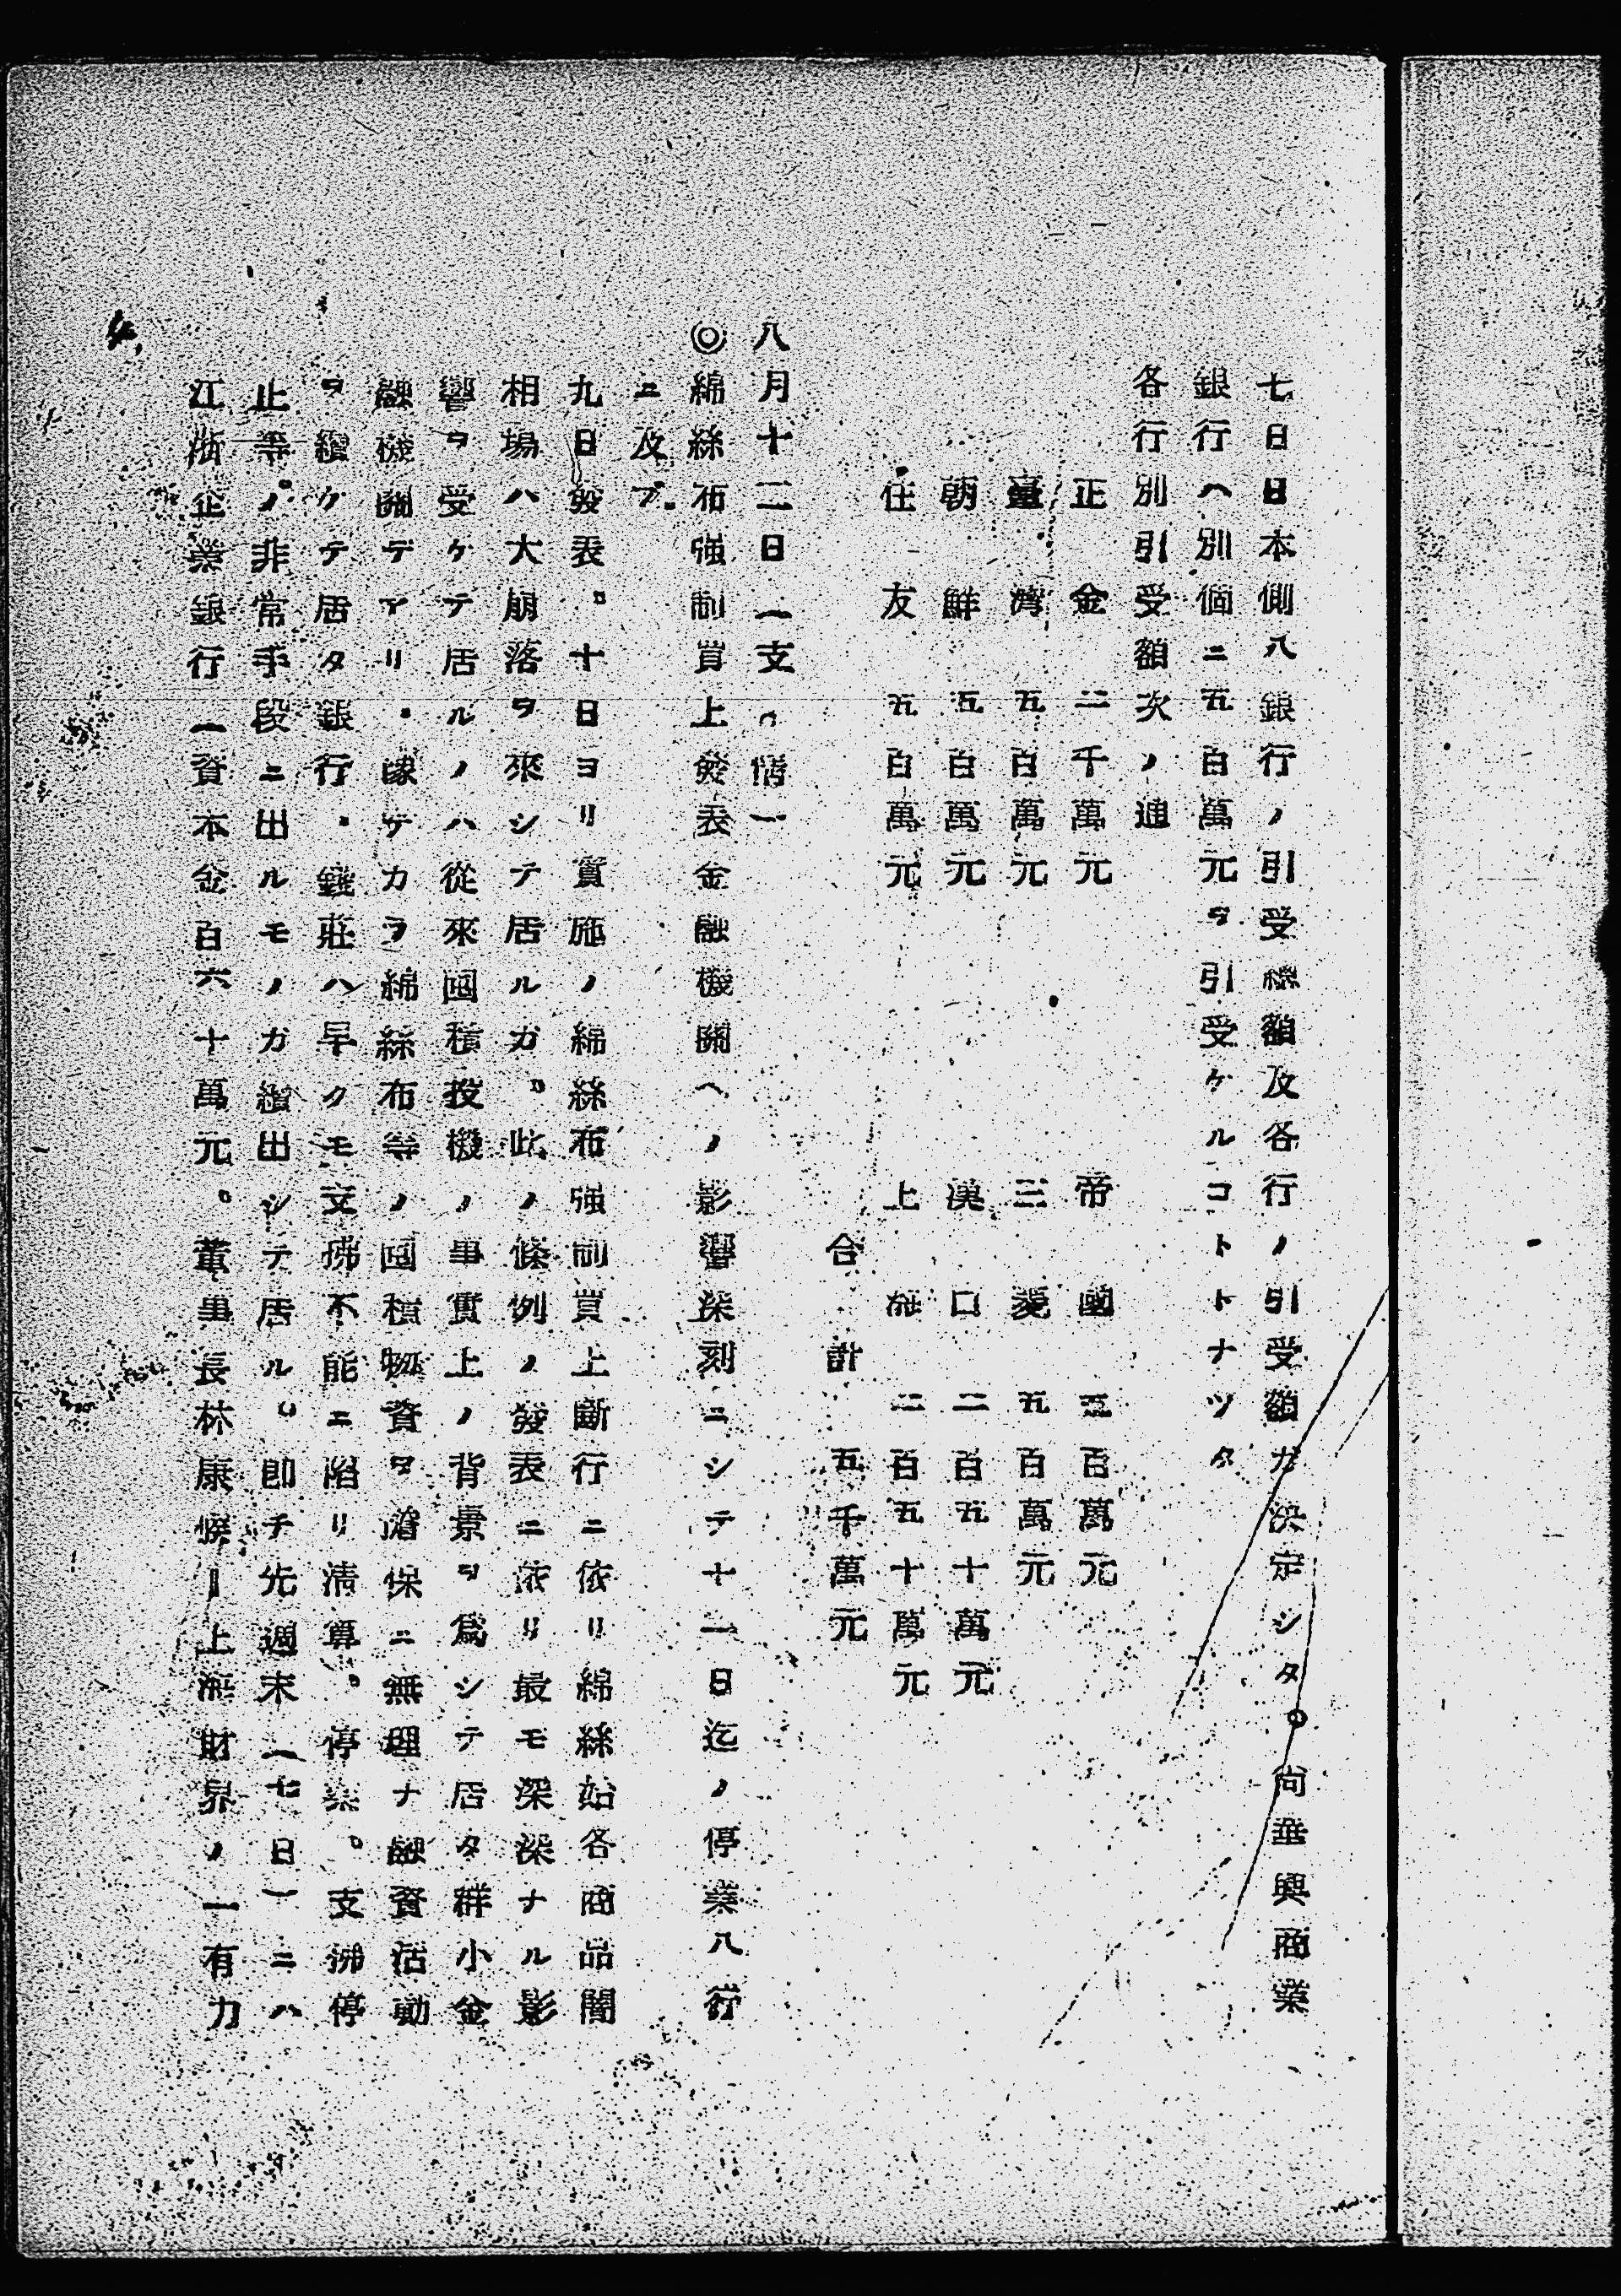 七日日本側八銀行ノ引受總額及各行ノ引受額ガ決定シタ。尚亜興商業
銀行ヘ別個ニ五百萬元ヲ引受ケルコトトナツタ
各行別引受額次ノ通
正金 二千萬元 帝國 五百萬元
臺灣 五百萬元 三菱 五百萬元
朝鮮 五百萬元 漢口 二百五十萬元
住友 五百萬元 上海 二百五十萬元
合計 五千萬元
八月十二日(支、情)
◎綿絲布強制買上發表金融機關ヘノ影響深刻ニシテ十二日迄ノ停業八行
ニ及ブ。
九日發表。十日ヨリ實施ノ綿絲布強制買上斷行ニ依リ綿絲始各商品闇
相場ハ大崩落ヲ來シテ居ルガ。此ノ條例ノ發表ニ依リ最モ深深ナル影
響ヲ受ケテ居ルノハ從來囤積投機ノ事實上ノ背景ヲ爲シテ居タ群小金
融機關デアリ・豫ケカラ綿絲布等ノ囤積物資ヲ擔保ニ無理ナ融資活動
ヲ續ケテ居タ銀行・錢莊ハ早クモ支拂不能ニ陷リ清算。停業。支拂停
止等ノ非常手段ニ出ルモノガ續出シテ居ル。即チ先週末(七日)ニハ
江浙企業銀行(資本金百六十萬元。董事長林康侯=上海財界ノ一有力
4,